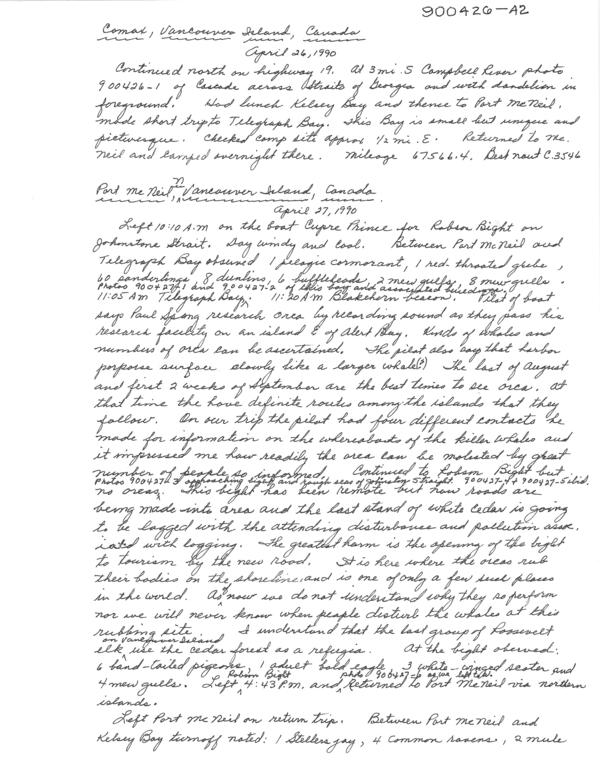 900426-A2
Comax, Vancouver Island, Canada
April 26, 1990
Continued north on highway 19. At 3 mi. S Campbell River photo
900426-1 of Cascade across Straits of Georgia and with dandelion in
foreground. Had lunch Kelsey Bay and thence to Port McNeil.
made short trip to Telegraph Bay. This Bay is small but unique and
picturesque. Checked camp site approx. 1/2 mi. E. Returned to Mc.
Neil and camped overnight there. Mileage 67566.4. Best nout C.3546
Port McNeil, Vancouver Island, Canada
April 27, 1990
Left 10:10 A.M on the boat Cupre Prince for Robson Bight on
Johnstone Strait. Day windy and cool. Between Port McNeil and
Telegraph Bay observed 1 pelagic cormorant, 1 red-throated grebe,
60 sanderlings, 8 dunlins, 6 buffleheads, 2 mew gulls, 8 murrgulls.
Photos 900427-1 and 900427-2 of this bay and associated buildings.
11:05 AM Telegraph Bay. 11:20 AM Blakehorn beacon. Pilot of boat
says Paul Spong research orca by recording sound as they pass his
research facility on an island E of Alert Bay. Kinds of whales and
numbers of orca can be ascertained. The pilot also say that harbor
porpoise surface slowly like a larger whale(?) The last of August
and first 2 weeks of September are the best times to see orca. At
that time the have definite routes among the islands that they
follow. On our trip the pilot had four different contacts he
made for information on the whereabouts of the killer whales and
it impressed me how readily the orca can be molested by great
number of people so informed. Continued to Robson Bight but
Photos 900427-3 approaching bight and rough seas of Johnston Straight. 900427-4 + 900427-5 ibid.
no orcas. This bight has been remote but now roads are
being made into area and the last stand of white cedar is going
to be logged with the attending disturbance and pollution assoc.
iatd with logging. The greatest harm is the opening of the bight
to tourism by the new road. It is here where the orcas rub
their bodies on the shoreline and is one of only a few such places
in the world. As now we do not understand why they so perform
nor we will never know when people disturb the whales at this
rubbing site. I understand that the last group of Roosevelt
on Vancouver Island
elk use the cedar forest as a refugia. At the bight observed:
6 band-tailed pigeons, 1 adult bald eagle, 3 white-winged scoter and
Robson Bight photo 900427-6 as we left it.
4 mew gulls. Left 4:43 P.M. and returned to Port McNeil via northern
islands.
Left Port McNeil on return trip. Between Port McNeil and
Kelsey Bay turnoff noted: 1 Stellers jay, 4 common ravens, 2 mule